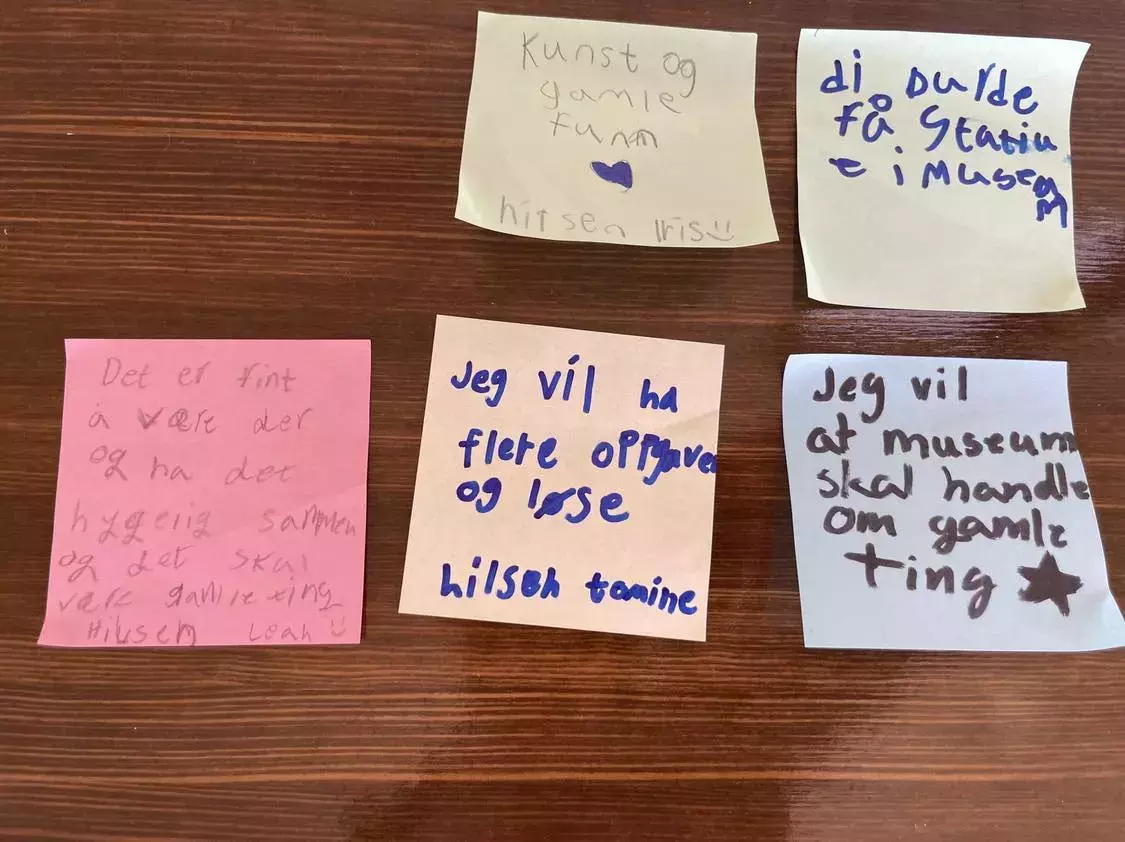 Kunst og
gamle
funn
hilsen Iris
di burde
få Statiu
e i Museu
m
Det er fint
å være der
og ha det
hyggerig sammen
og det skal
være gamle ting
Hilsen Leah
Jeg vil ha
flere oppgaver
og løse
hilsen tomine
Jeg vil
at museum
skal handle
om gamle
ting